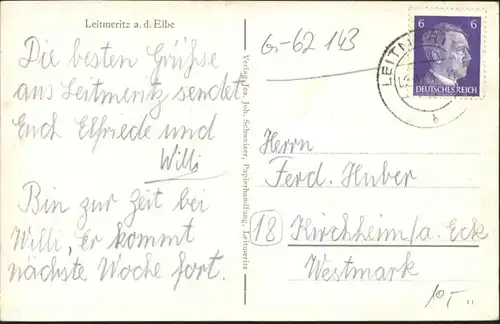 Leitmeritz a. d. Elbe
Die besten Grühse
aus Leitmeritz sendet
Euch Elfriede und
Willi
Bin zur Zeit bei
Willi, er kommt
nächste Woche fort.
Verlag Jos. Joh. Schweizer, Papierhandlung, Leitmeritz
Gr-62 143
6 6
DEUTSCHES REICH
LEITM
b
Herrn
Ferd. Huber
18 Kirchheim/a. Eck
Westmark
10,-
11